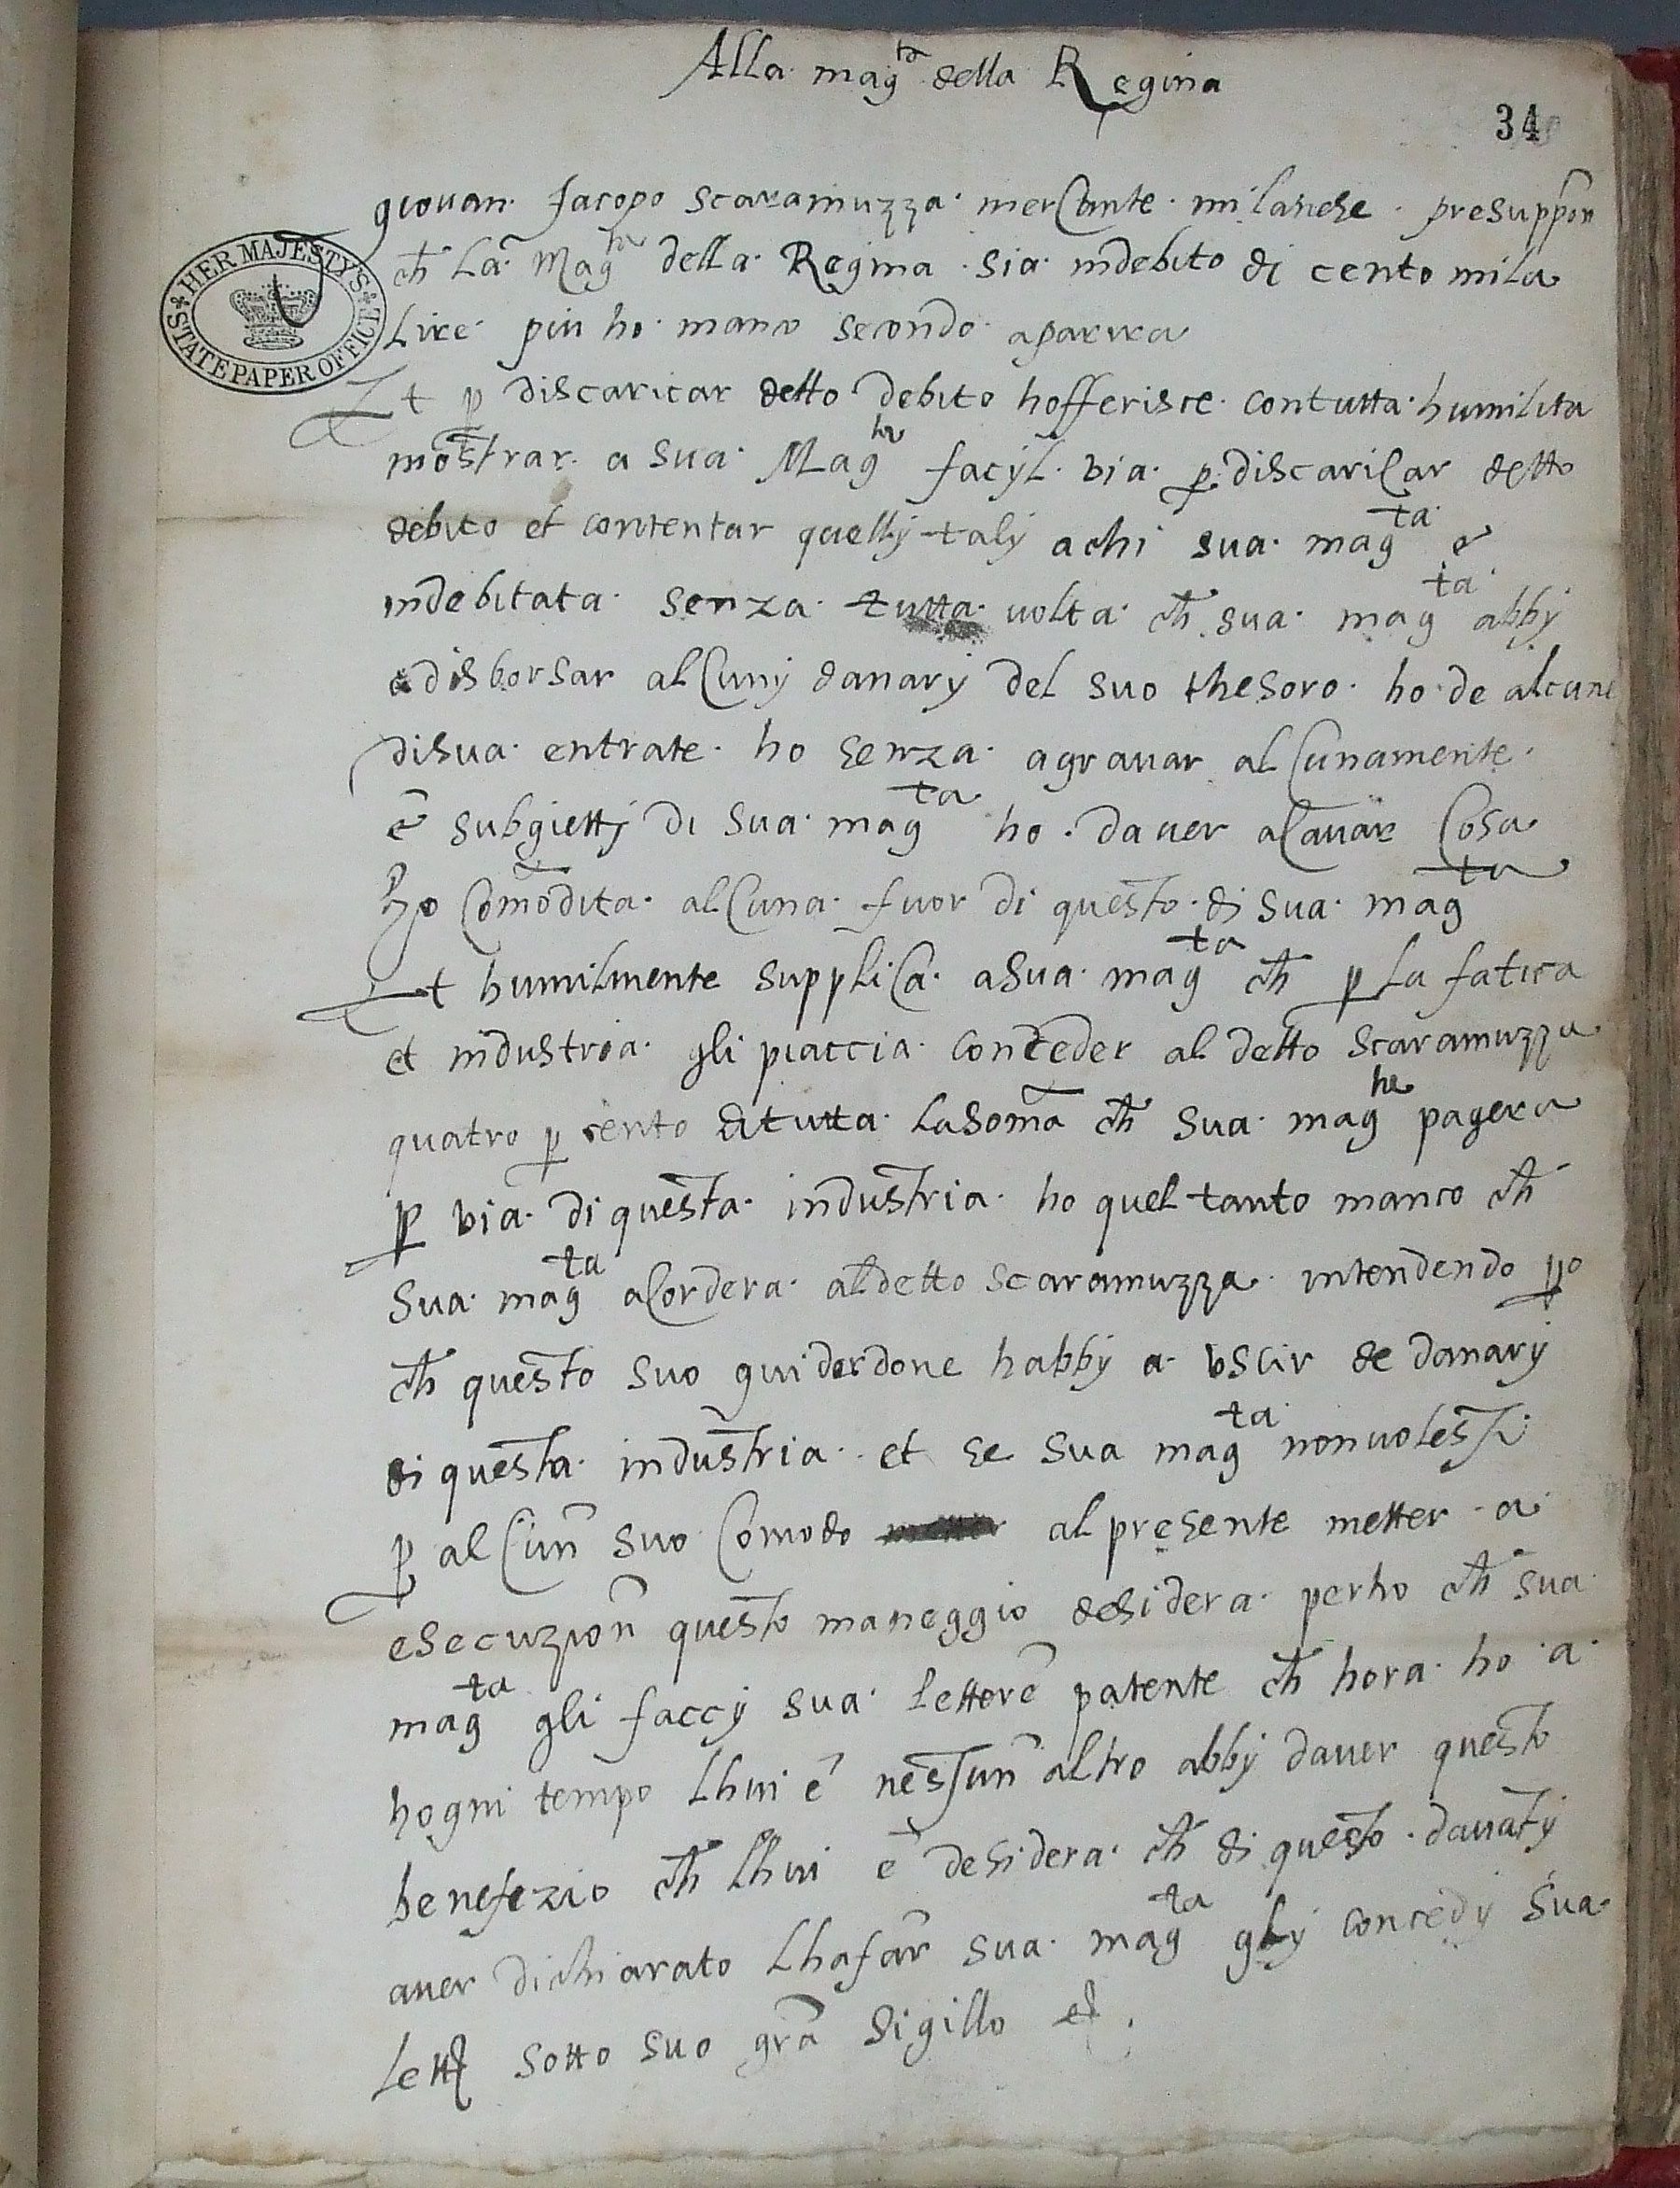 Alla mag^ta della Regina
34
giouan Jacopo scaramuzza mercante milanese presuppon
ch La Mag^ta della Regina sia indebito di cento mila
HER MAJESTY'S STATE PAPER OFFICE
Lire piu ho manco secondo aparira
Et p discaricar detto debito hofferisce contutta humilita
mostrar a sua Mag^ta facyl via p discaricar detto
debito et contentar quellj talj a chi sua mag^ta e
indebitata senza tutta uolta ch sua mag^ta abbj
a disborsar alcunj danarj del suo thesoro ho de alcune
disua entrate ho senza agrauar alcunamente
e subgiettj di sua mag^ta ho dauer a cauar cosa
ho comodita alcuna fuor di questo di sua mag^ta
Et humilmente supplica asua mag^ta ch p la fatica
et industria gli piaccia conceder al detto scaramuzza
quatro p cento di tutta lasoma ch sua mag^ta pagera
p via di questa industria ho quel tanto manco ch
sua mag^ta acordera al detto scaramuzza intendendo po
ch questo suo guiderdone habbj a vscir de danarj
di questa industria et se sua mag^ta non uolessi
p alcun suo comodo al presente metter a
esecuzion questo maneggio desidera perho ch sua
mag^ta gli faccj sua lettere patente ch hora ho a
hogni tempo lhui e nessun altro abbj dauer questo
benefezio ch lhui e desidera ch di questo dauatj
auer dichiarato lhafar sua mag^ta glj concedj sua
lett sotto suo gra sigillo et